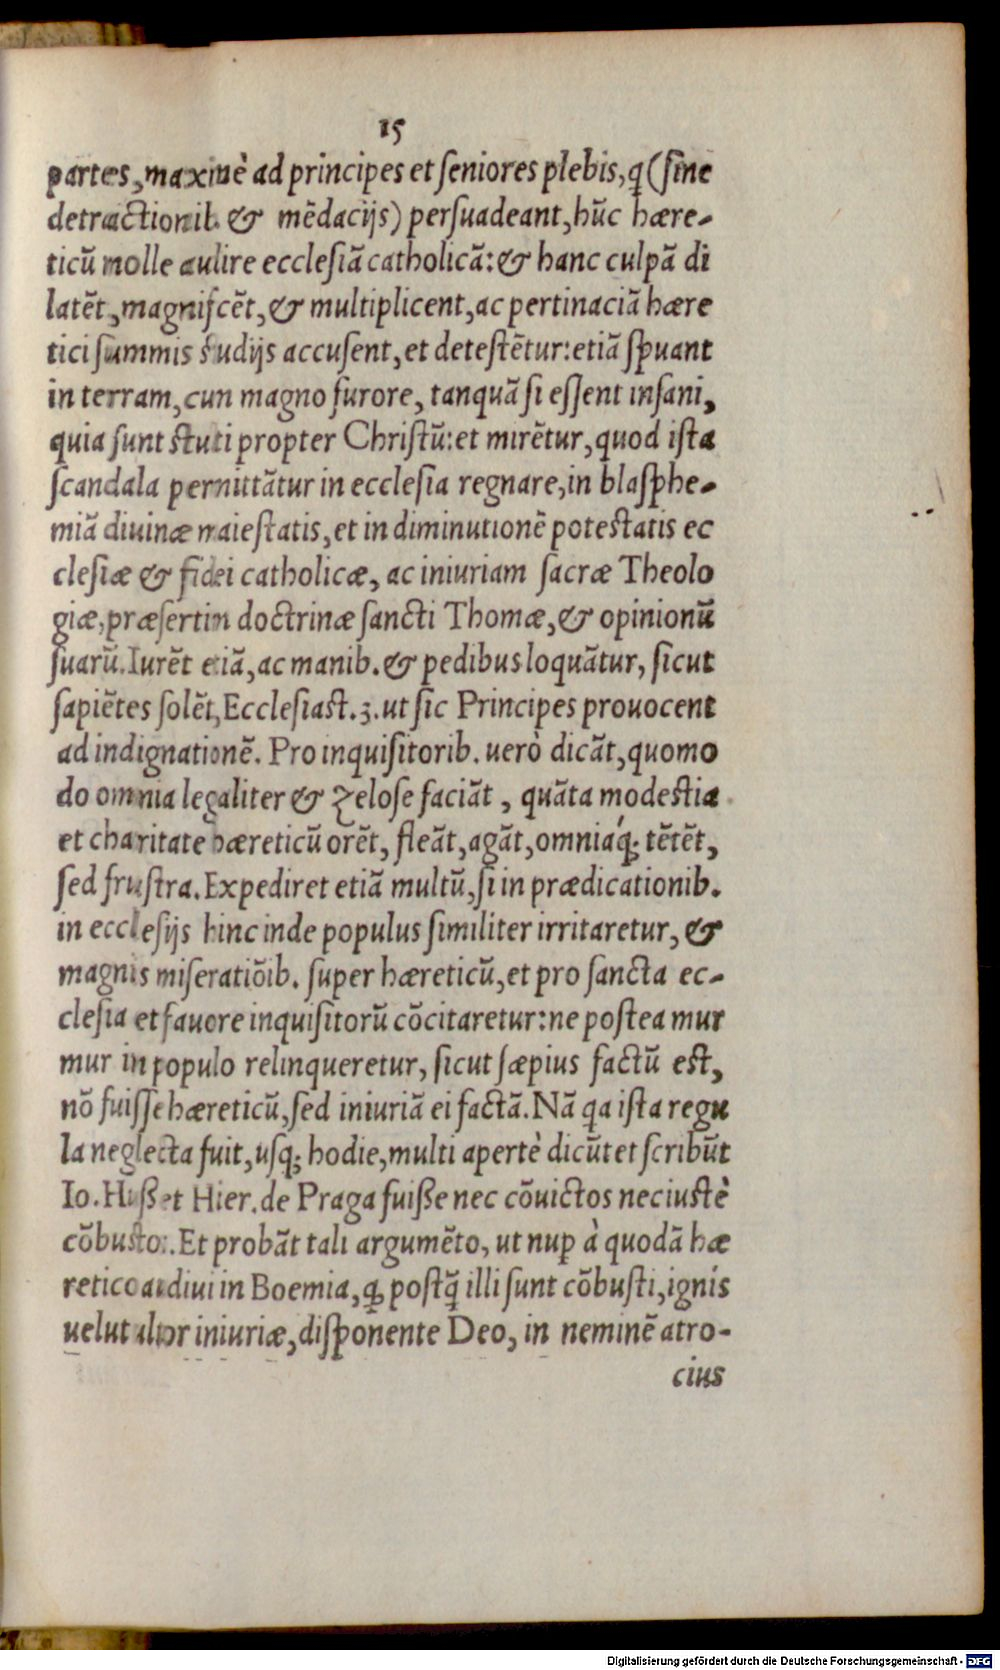 15
partes, maximè ad principes et seniores plebis, q (sine
detractionib. & mēdacijs) persuadeant, hūc hære-
ticū nolle audire ecclesiā catholicā: & hanc culpā di
latēt, magnificēt, & multiplicent, ac pertinaciā hære
tici summis studijs accusent, et detestētur: etiā spuant
in terram, cun magno furore, tanquā si essent insani,
quia sunt stulti propter Christū: et mirētur, quod ista
scandala permittātur in ecclesia regnare, in blasphe-
miā diuinæ maiestatis, et in diminutionē potestatis ec
clesiæ & fidei catholicæ, ac iniuriam sacræ Theolo
giæ, præsertim doctrinæ sancti Thomæ, & opinionū
suarū. Iurēt etiā, ac manib. & pedibus loquātur, sicut
sapiētes solēt, Ecclesiast. 3. ut sic Principes prouocent
ad indignationē. Pro inquisitorib. uerò dicāt, quomo
do omnia legaliter & zelose faciāt, quāta modestia
et charitate hæreticū orēt, fleāt, agāt, omniaq́; tētēt,
sed frustra. Expediret etiā multū, si in prædicationib.
in ecclesijs hinc inde populus similiter irritaretur, &
magnis miseratiōib. super hæreticū, et pro sancta ec-
clesia et fauore inquisitorū cōcitaretur: ne postea mur
mur in populo relinqueretur, sicut sæpius factū est,
nō fuisse hæreticū, sed iniuriā ei factā. Nā qa ista regu
la neglecta fuit, usq; hodie, multi apertè dicūt et scribūt
Io. Huß et Hier. de Praga fuiße nec cōuictos nec iustè
cōbustos. Et probāt tali argumēto, ut nup à quodā hæ
retico audiui in Boemia, ꝙ postq̄ illi sunt cōbusti, ignis
uelut ultor iniuriæ, disponente Deo, in neminē atro-
cius
Digitalisierung gefördert durch die Deutsche Forschungsgemeinschaft - DFG